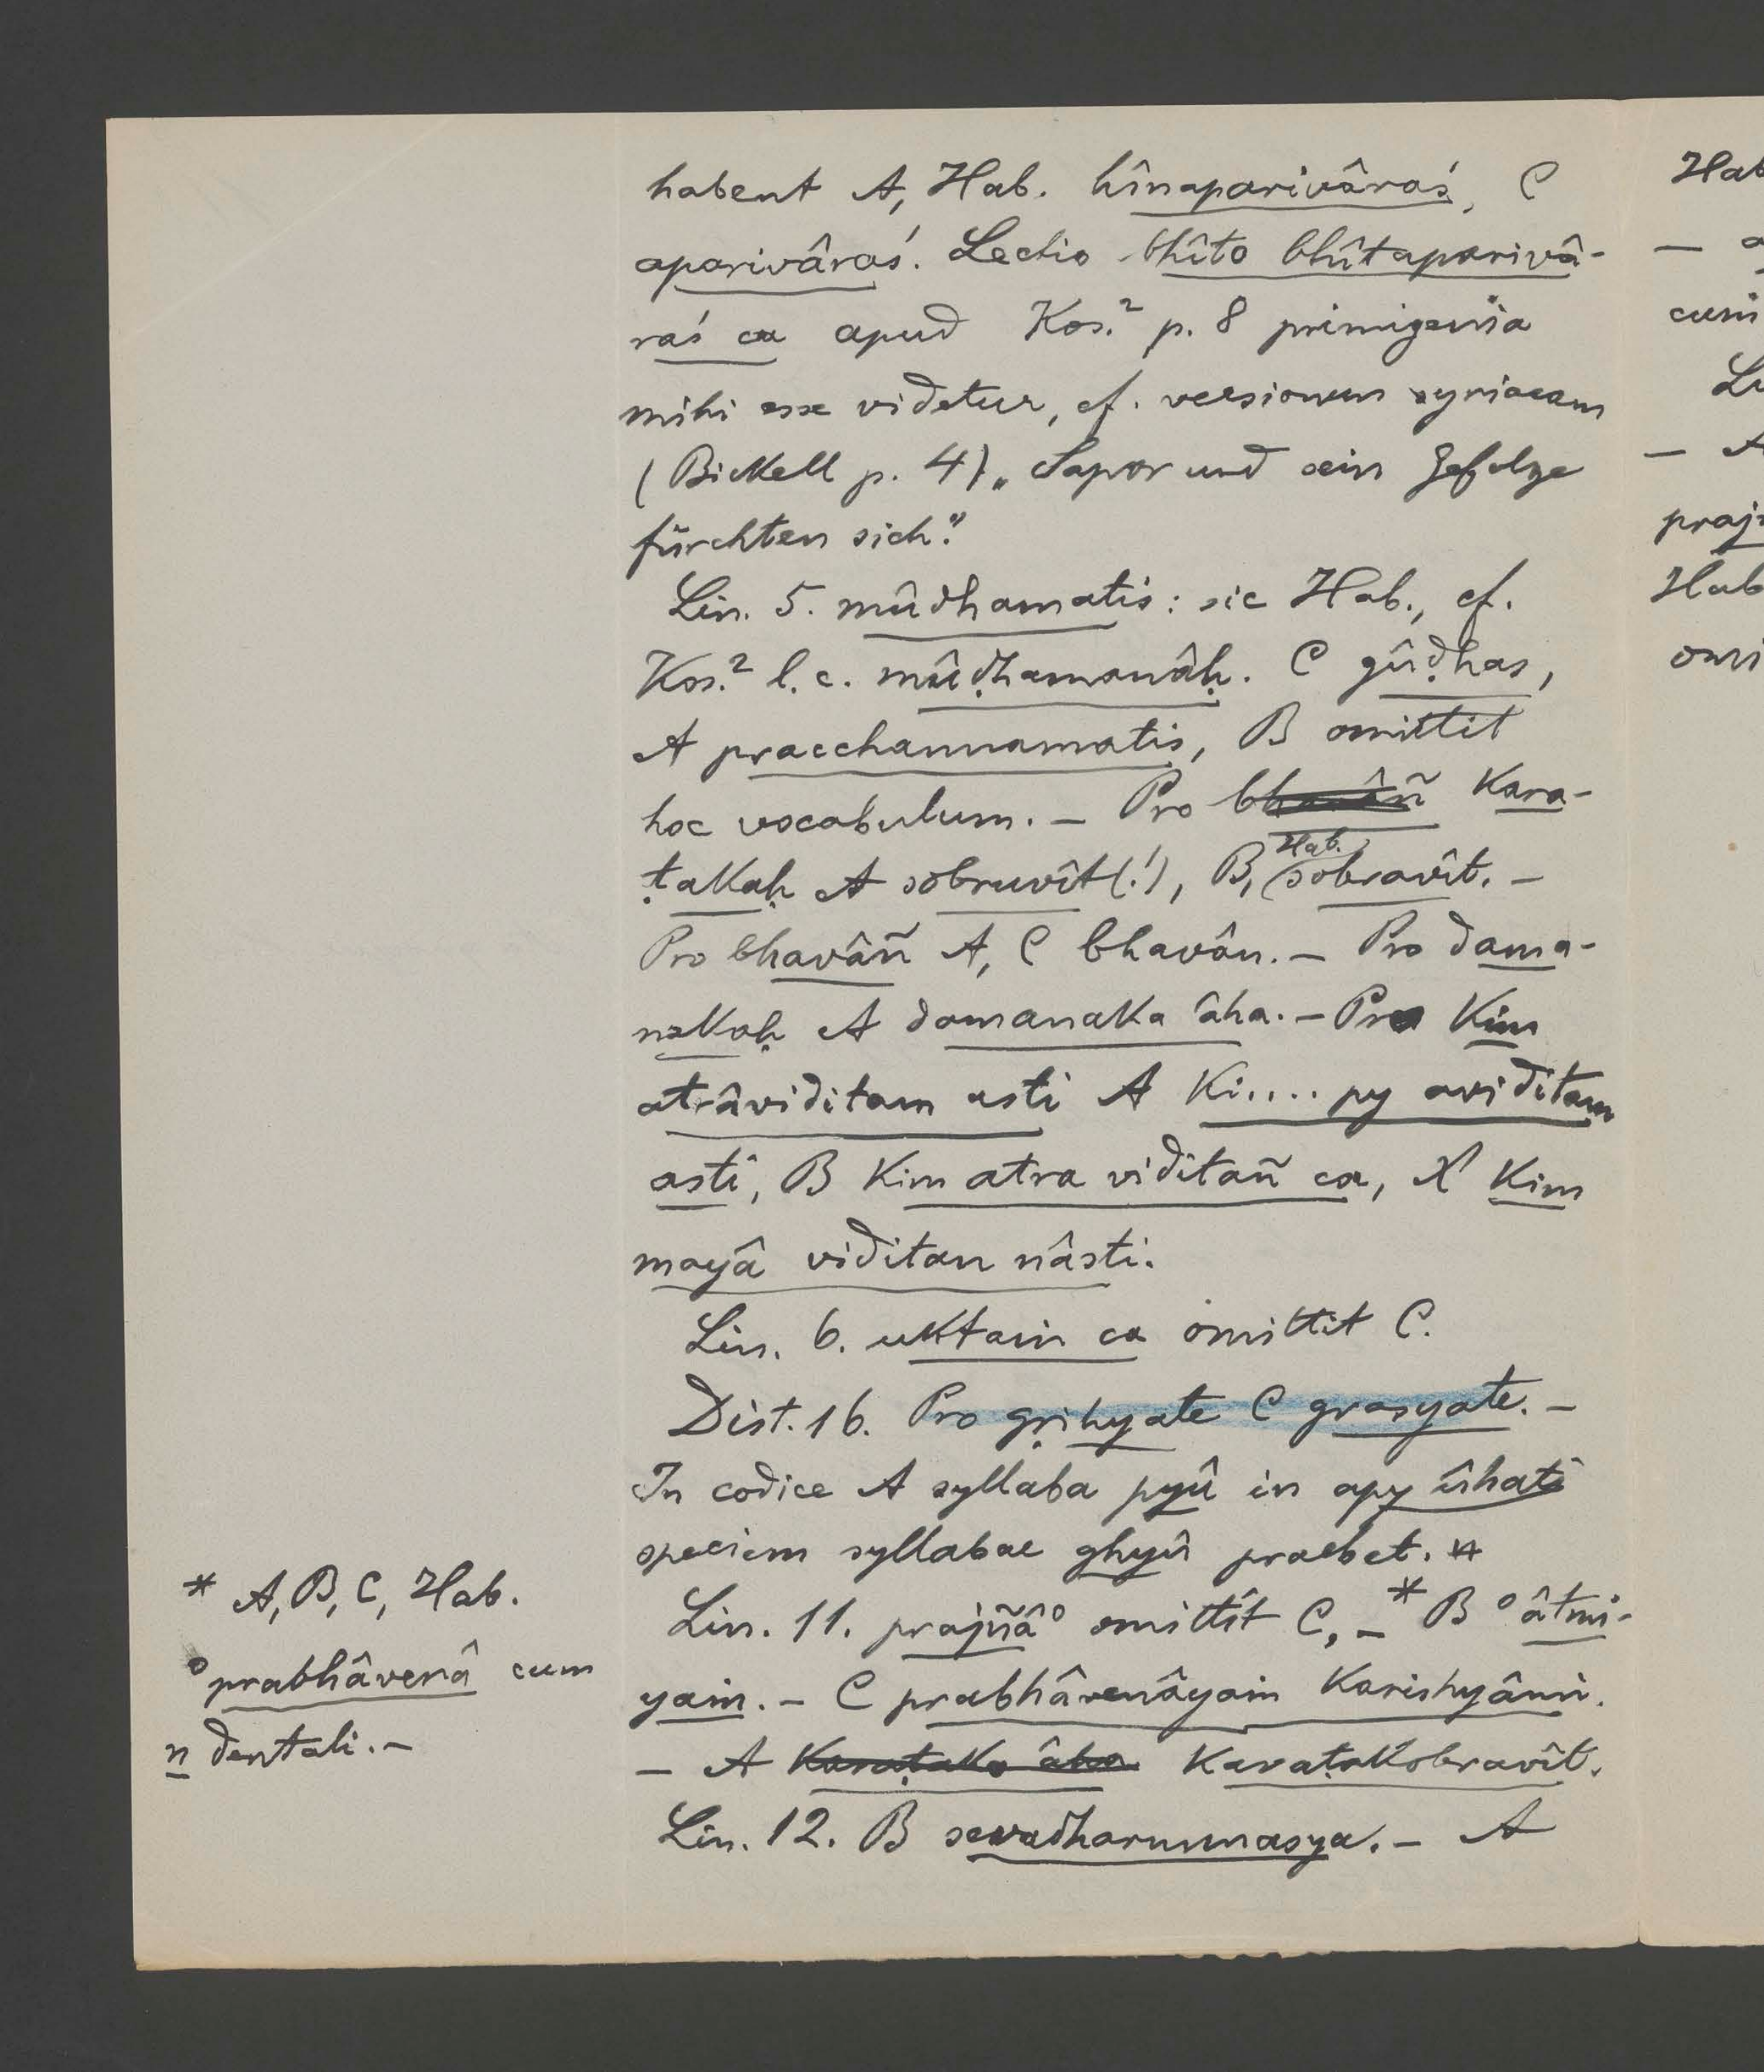 habent A, Hab. hînaparivâraś, C
aparivâraś. Lectio bhîto bhîtaparivâ-
raś ca apud Kos.² p. 8 primigenia
mihi esse videtur, cf. versionem syriacam
(Bickell p. 4) „Sapor und sein Gefolge
fürchten sich."
Lin. 5. mûdhamatis: sic Hab., cf.
Kos.² l. c. mûḍhamanâḥ. C gûḍhas,
A pracchannamatis, B omittit
hoc vocabulum. — Pro bhavâñ Kara-
ṭakaḥ A sobruvît(!), B, Hab. sobravît. —
Pro bhavâñ A, C bhavân. — Pro dama-
nakaḥ A damanaka âha. — Pro kim
atrâviditam asti A ki.... py aviditam
asti, B kim atra viditañ ca, X kim
mayâ viditan nâsti.
Lin. 6. uktaṁ ca omittit C.
Dist. 16. Pro gṛihyate C grasyate. —
In codice A syllaba pyû in apy ûhati
speciem syllabae ghyû praebet. *
Lin. 11. prajñâ° omittit C, — * B °âtmî-
yaṁ. — C prabhâvenâyaṁ karishyâmi.
— A Karaṭaka âha Karaṭakobravît.
Lin. 12. B sevadharmmasya. — A
* A, B, C, Hab.
°prabhâvenâ cum
n dentali. —
Hab
—
cum
— A
praj
Hab
omi